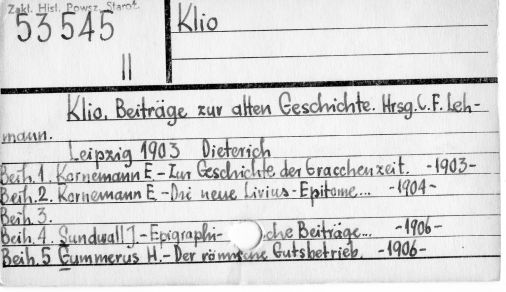 Zakl. Hist. Powsz. Staroż.
53545
II
Klio
Klio, Beiträge zur alten Geschichte. Hrsg. C. F. Leh-
mann.
Leipzig 1903 Dieterich
Beih. 1. Kornemann E. - Zur Geschichte der Gracchenzeit. -1903-
Beih. 2. Kornemann E. - Die neue Livius-Epitome... -1904-
Beih. 3.
Beih. 4. Sundwall J. - Epigraphi- che Beiträge... -1906-
Beih. 5 Gummerus H. - Der römische Gutsbetrieb. -1906-